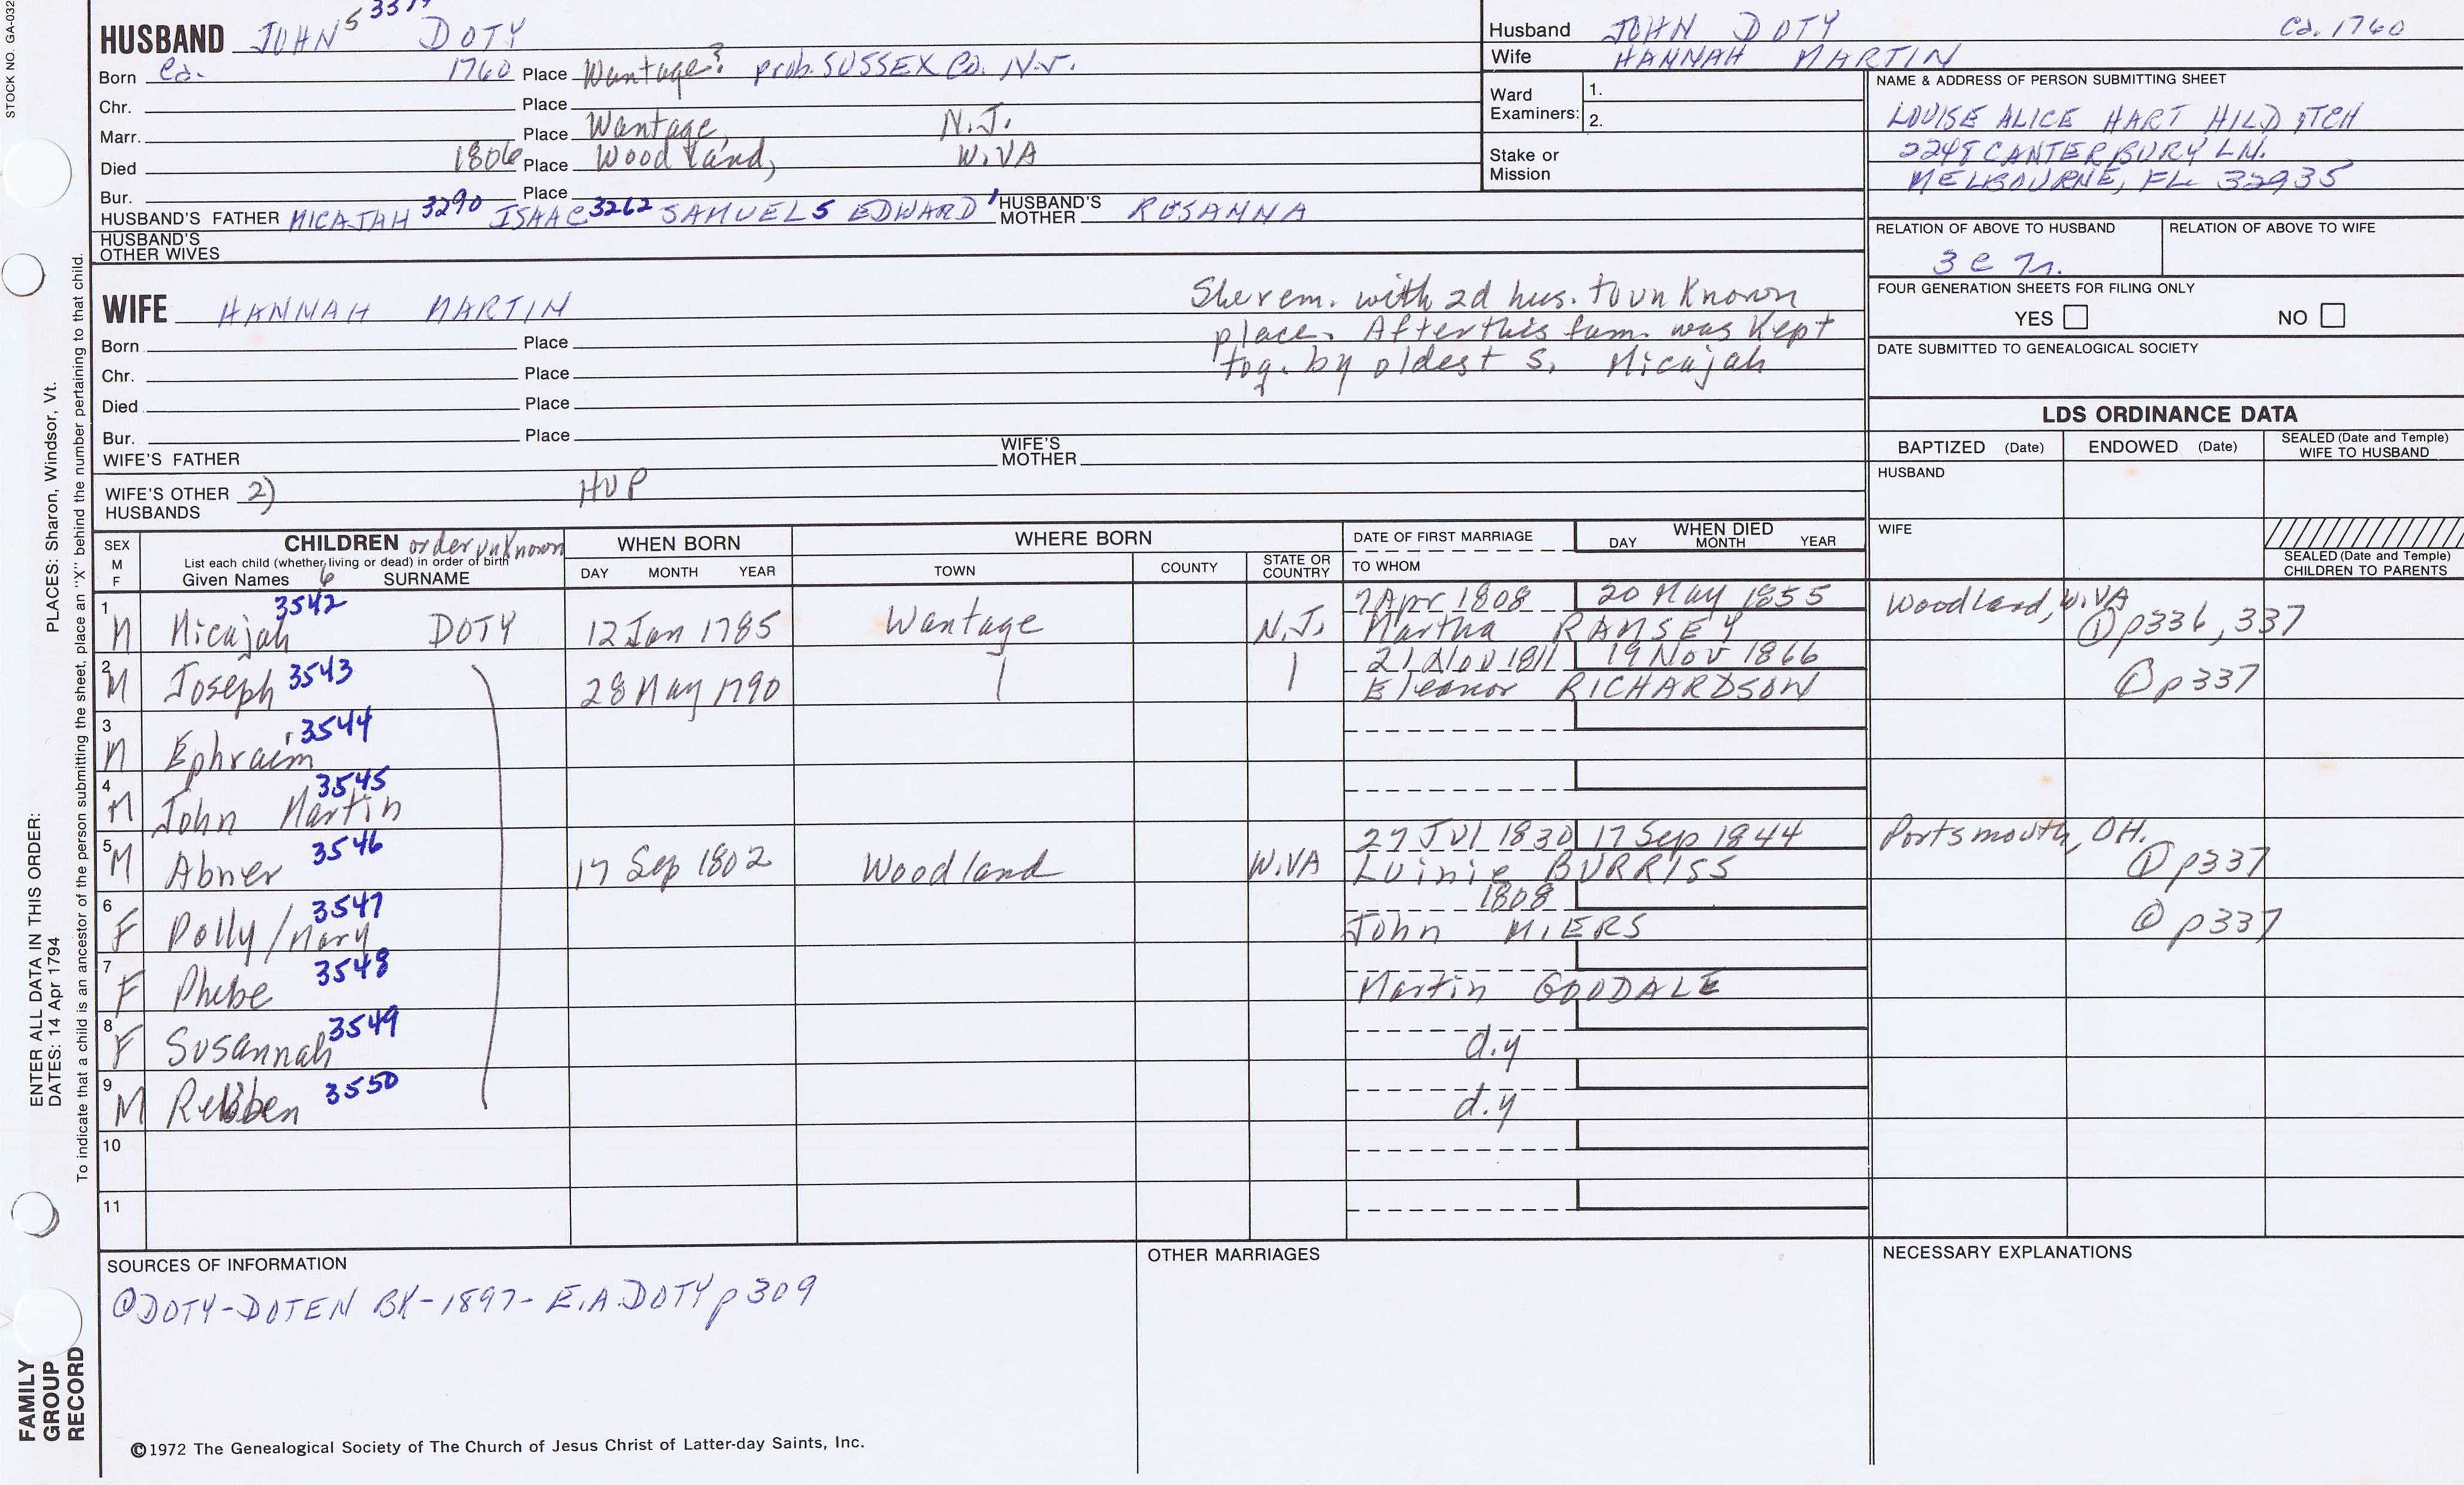 STOCK NO. GA-032
HUSBAND JOHN 5 DOTY
Born Ca. 1760 Place Wantage? prob. SUSSEX Co. N.J.
Chr. Place
Marr. Place Wantage, N.J.
Died 1806 Place Woodland, W.VA
Bur. Place
HUSBAND'S FATHER MICAJAH 3290 ISAAC 3262 SAMUEL 5 EDWARD ' HUSBAND'S MOTHER ROSANNA
HUSBAND'S OTHER WIVES
Husband JOHN DOTY Ca. 1760
Wife HANNAH MARTIN
Ward Examiners: 1.
2.
Stake or Mission
NAME & ADDRESS OF PERSON SUBMITTING SHEET
LOUISE ALICE HART HILDITCH
2248 CANTERBURY LN.
MELBOURNE, FL 32935
RELATION OF ABOVE TO HUSBAND RELATION OF ABOVE TO WIFE
FOUR GENERATION SHEETS FOR FILING ONLY
YES NO
DATE SUBMITTED TO GENEALOGICAL SOCIETY
WIFE HANNAH MARTIN
Born Place
Chr. Place
Died Place
Bur. Place
She rem. with 2d hus. to unknown
place. After this fam. was kept
tog. by oldest s. Micajah
WIFE'S FATHER WIFE'S MOTHER
WIFE'S OTHER HUSBANDS 2) HUP
LDS ORDINANCE DATA
BAPTIZED (Date) ENDOWED (Date) SEALED (Date and Temple) WIFE TO HUSBAND
HUSBAND
WIFE
SEALED (Date and Temple) CHILDREN TO PARENTS
SEX M F CHILDREN order unknown
List each child (whether living or dead) in order of birth
Given Names 6 SURNAME
WHEN BORN DAY MONTH YEAR
WHERE BORN TOWN COUNTY STATE OR COUNTRY
DATE OF FIRST MARRIAGE TO WHOM
WHEN DIED DAY MONTH YEAR
1 M Micajah 3542 DOTY 12 Jan 1785 Wantage N.J. 7 Apr 1808 20 May 1855 Martha RAMSEY Woodland, W.VA ① p336, 337
2 M Joseph 3543 28 May 1790 21 Nov 1811 19 Nov 1866 Eleanor RICHARDSON ① p337
3 M Ephraim 3544
4 M John Martin 3545
5 M Abner 3546 17 Sep 1802 Woodland W.VA 27 Jul 1830 17 Sep 1844 Luinie BURRISS Portsmouth, OH. ① p337
6 F Polly/Mary 3547 1808 John MIERS ① p337
7 F Phebe 3548 Martin GOODALE
8 F Susannah 3549 d.y
9 M Reuben 3550 d.y
10
11
SOURCES OF INFORMATION
① DOTY-DOTEN BK-1897- E.A. DOTY p 309
OTHER MARRIAGES
NECESSARY EXPLANATIONS
©1972 The Genealogical Society of The Church of Jesus Christ of Latter-day Saints, Inc.
FAMILY GROUP RECORD
ENTER ALL DATA IN THIS ORDER:
DATES: 14 Apr 1794
PLACES: Sharon, Windsor, Vt.
To indicate that a child is an ancestor of the person submitting the sheet, place an "X" behind the number pertaining to that child.